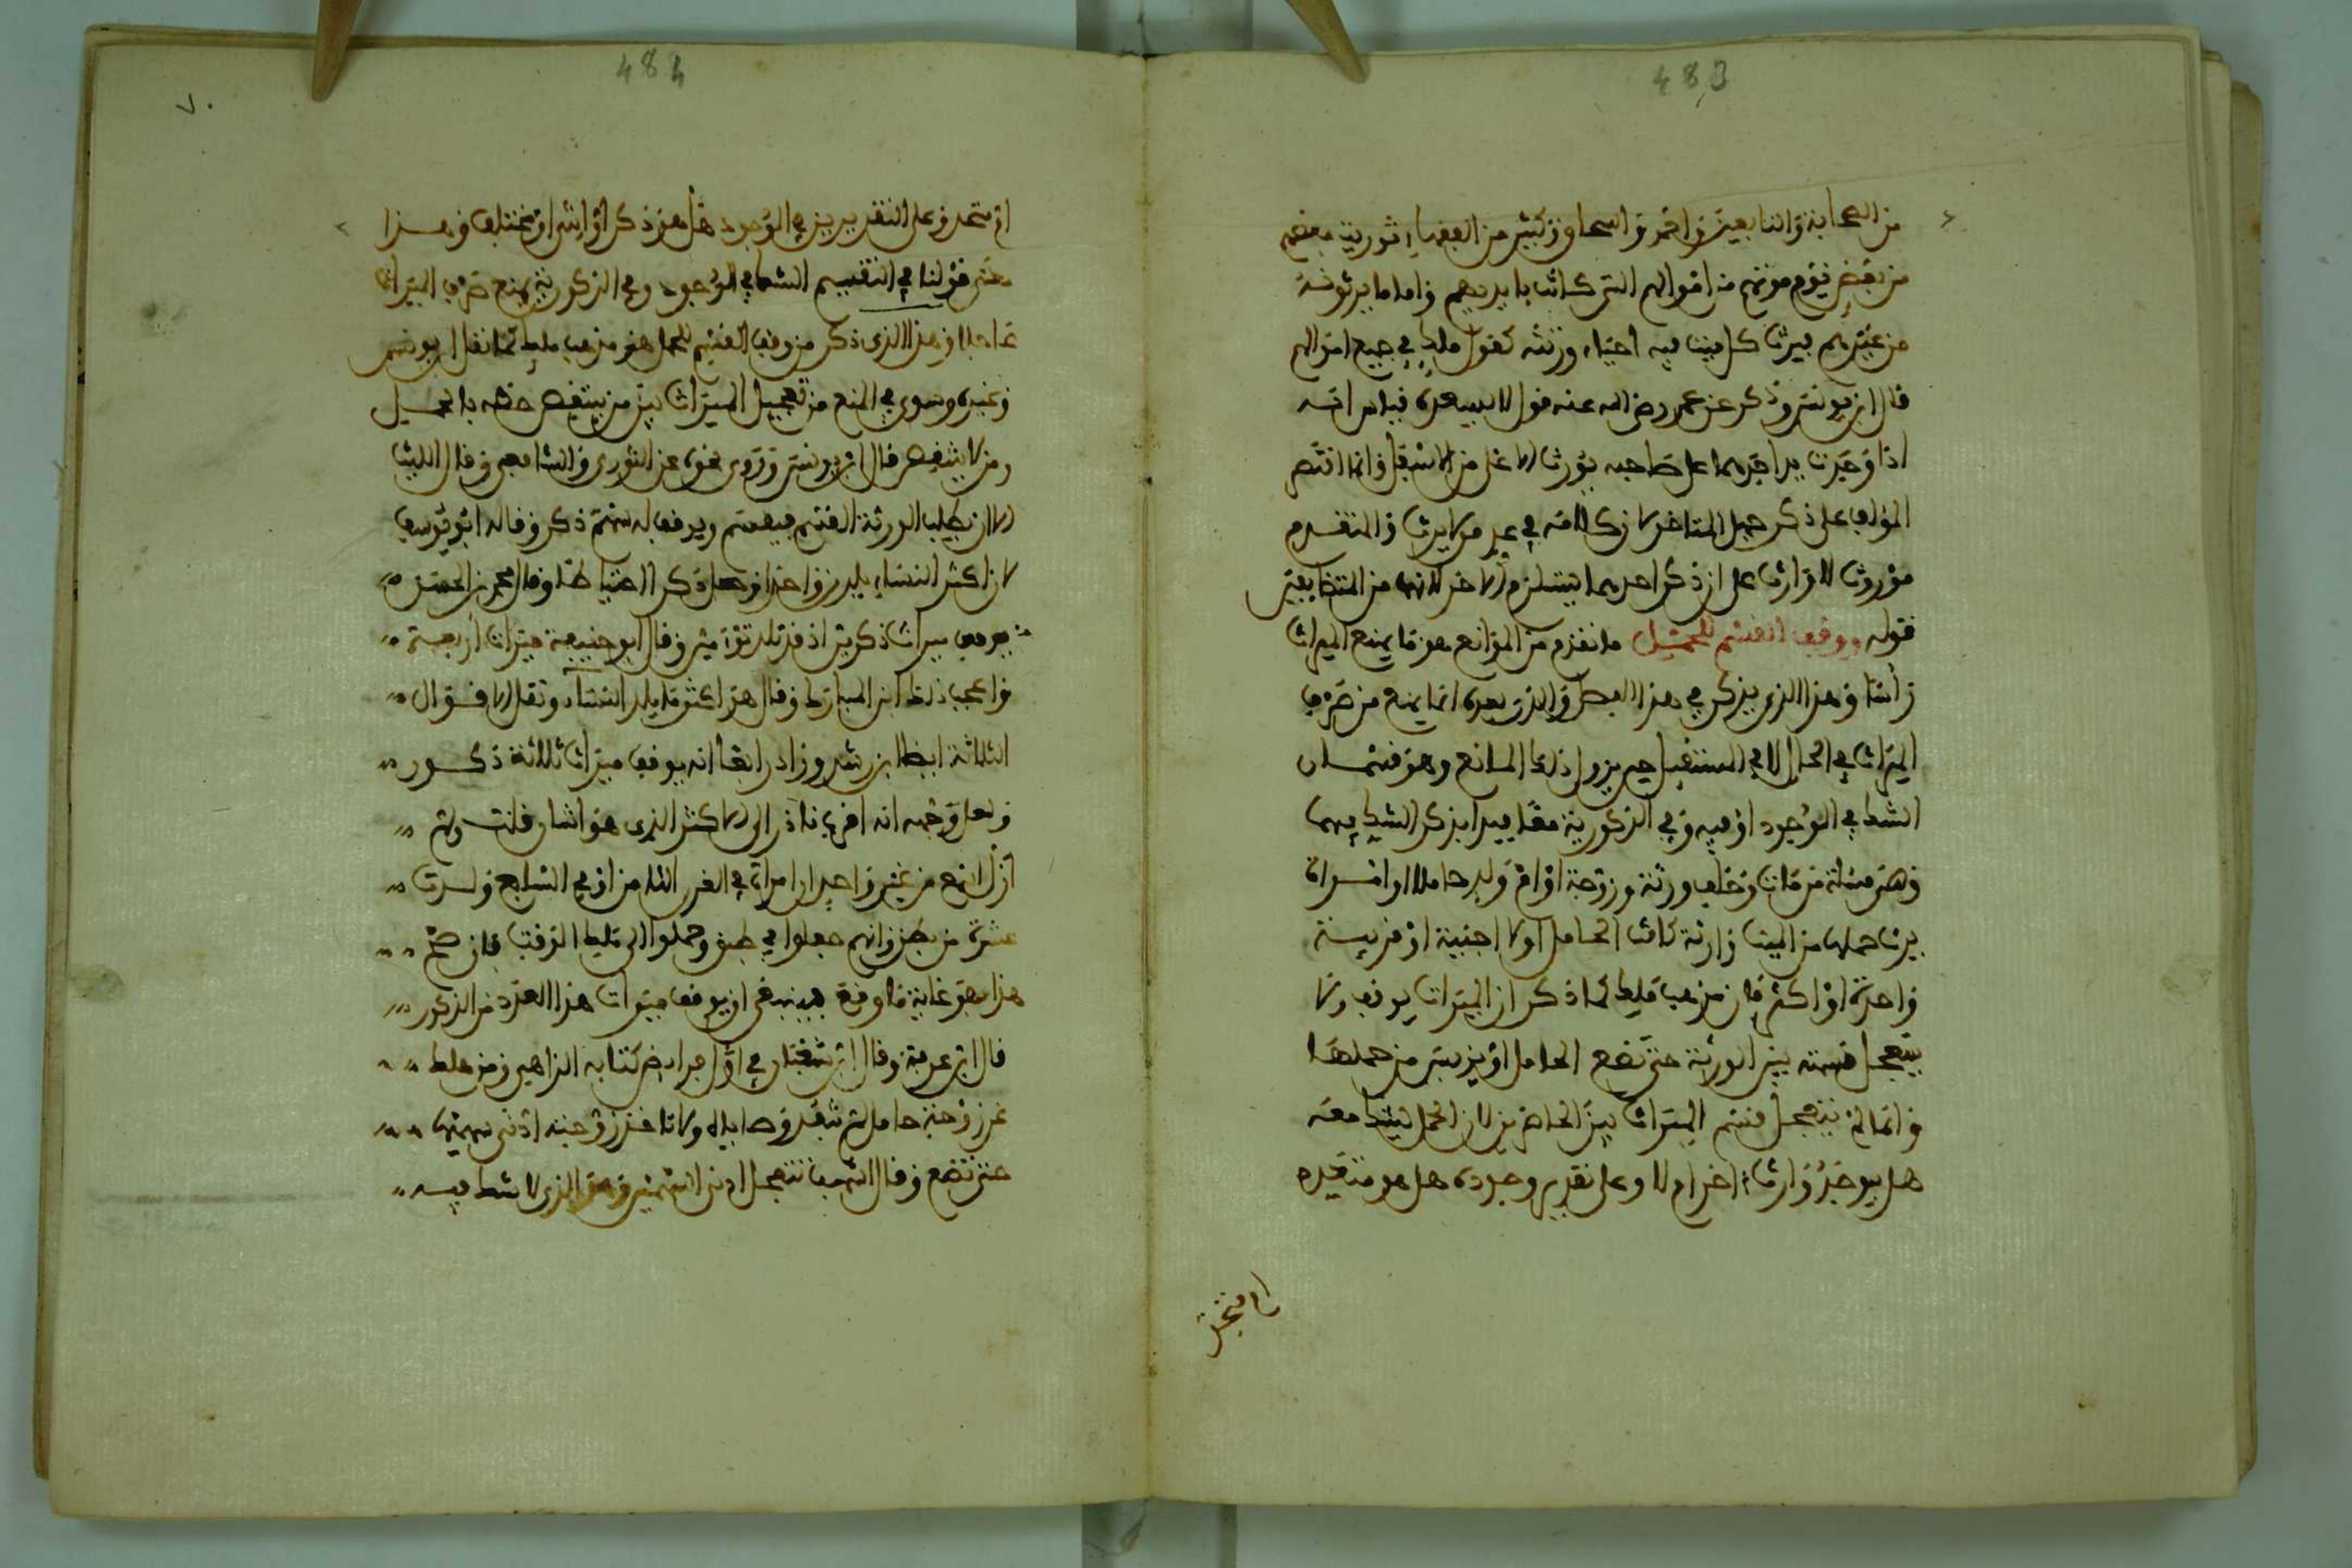 483
من الصحابة والتابعين واحمد واسحاق وكثير من الفقهاء توريث بعضهم
من بعض يوم موتهم من اموالهم التي كانت بايديهم واما ما يرثونه
من غيرهم فيرث كل ميت فيه احياء ورثته كقول ملك في جميع اموالهم
قال ابن يونس وذكر عن عمر رضي الله عنه قول لا يسعه قياس انه
اذا وجدت يد احدهما على صاحبه يورث الاعلى من الاسفل وانما اقتصر
المؤلف على ذكر جهل المتاخر لان كلامه في عد من لا يرث والمتقدم
موروث لا وارث على ان ذكر احدهما يستلزم الاخر لانهما من المتضايفين
قوله ووقف القسم للحمل ما تقدم من الموانع هو ما يمنع الميراث
رأسا وهذا الذي يذكر في هذا الفصل والذي بعده انما يمنع من صرف
الميراث في الحال لا في المستقبل حين يزول ذلك المانع وهو قسمان
الشك في الوجود او فيه وفي الذكورية معا فبدا بذكر الشك فيهما
وهي مسئلة من مات وخلف ورثة وزوجة او ام ولد حاملا او امراة
يرث حملها من الميت وارثة كانت الحامل او لا اجنبية او قريبة
واحدة او اكثر فان مذهب ملك كما ذكر ان الميراث يوقف ولا
يتعجل قسمته بين الورثة حتى تضع الحامل او ييس من حملها
وانما لم يتعجل قسم الميراث بين الحاضرين لان الحمل يشك معه
هل يوجد وارث اخر ام لا وعلى تقدير وجوده هل هو متحد
او متعدد
484
٧٠
او متعدد وعلى التقديرين في الوجود هل هو ذكر او انثى او مختلف وهذا
معنى قولنا في التقسيم الشك في الوجود وفي الذكورية يمنع صرف الميراث
عاجلا وهذا الذي ذكر من وقف القسم للحمل هو مذهب ملك كما نقل ابن يونس
وغيره وسوى في المنع من تعجيل الميراث بين من ينقص حظه بالحمل
ومن لا ينقص قال ابن يونس وروي نحوه عن الثوري والشافعي وقال الليث
الا ان يطلب الورثة القسم فيقسم ويوقف له سهم ذكر وقاله ابو يوسف
لان اكثر النساء يلدن واحدا وجعل ذكرا احتياطا وقال محمد بن الحسن
يوقف ميراث ذكرين اذ قد تلد توأمين وقال ابو حنيفة ميراث اربعة
واعجب ذلك ابن المبارك وقال هو اكثر ما يلد النساء ونقل الاقوال
الثلاثة ايضا ابن رشد وزاد رابعا انه يوقف ميراث ثلاثة ذكور
ولعل وجهه انه اقرب نادر الى الاكثر الذي هو اثنان قلت ولم
ازل اسمع من غير واحد ان امراة في القرن الثامن او في السابع ولدت
عشرة من بطن وانهم جعلوا في طبق وحملوا الى ملك الوقت فان صح
هذا فهو غاية ما وقع فينبغي ان يوقف ميراث هذا العدد من الذكور
قال ابن عرفة وقال ابن شعبان في اول فرايض كتابه الزاهي ومن هلك
عن زوجة حامل لم تنفذ وصاياه ولا تاخذ زوجته ادنى سهمها
حتى تضع وقال اشهب تتعجل ادنى السهمين وهو الذي لا شك فيه